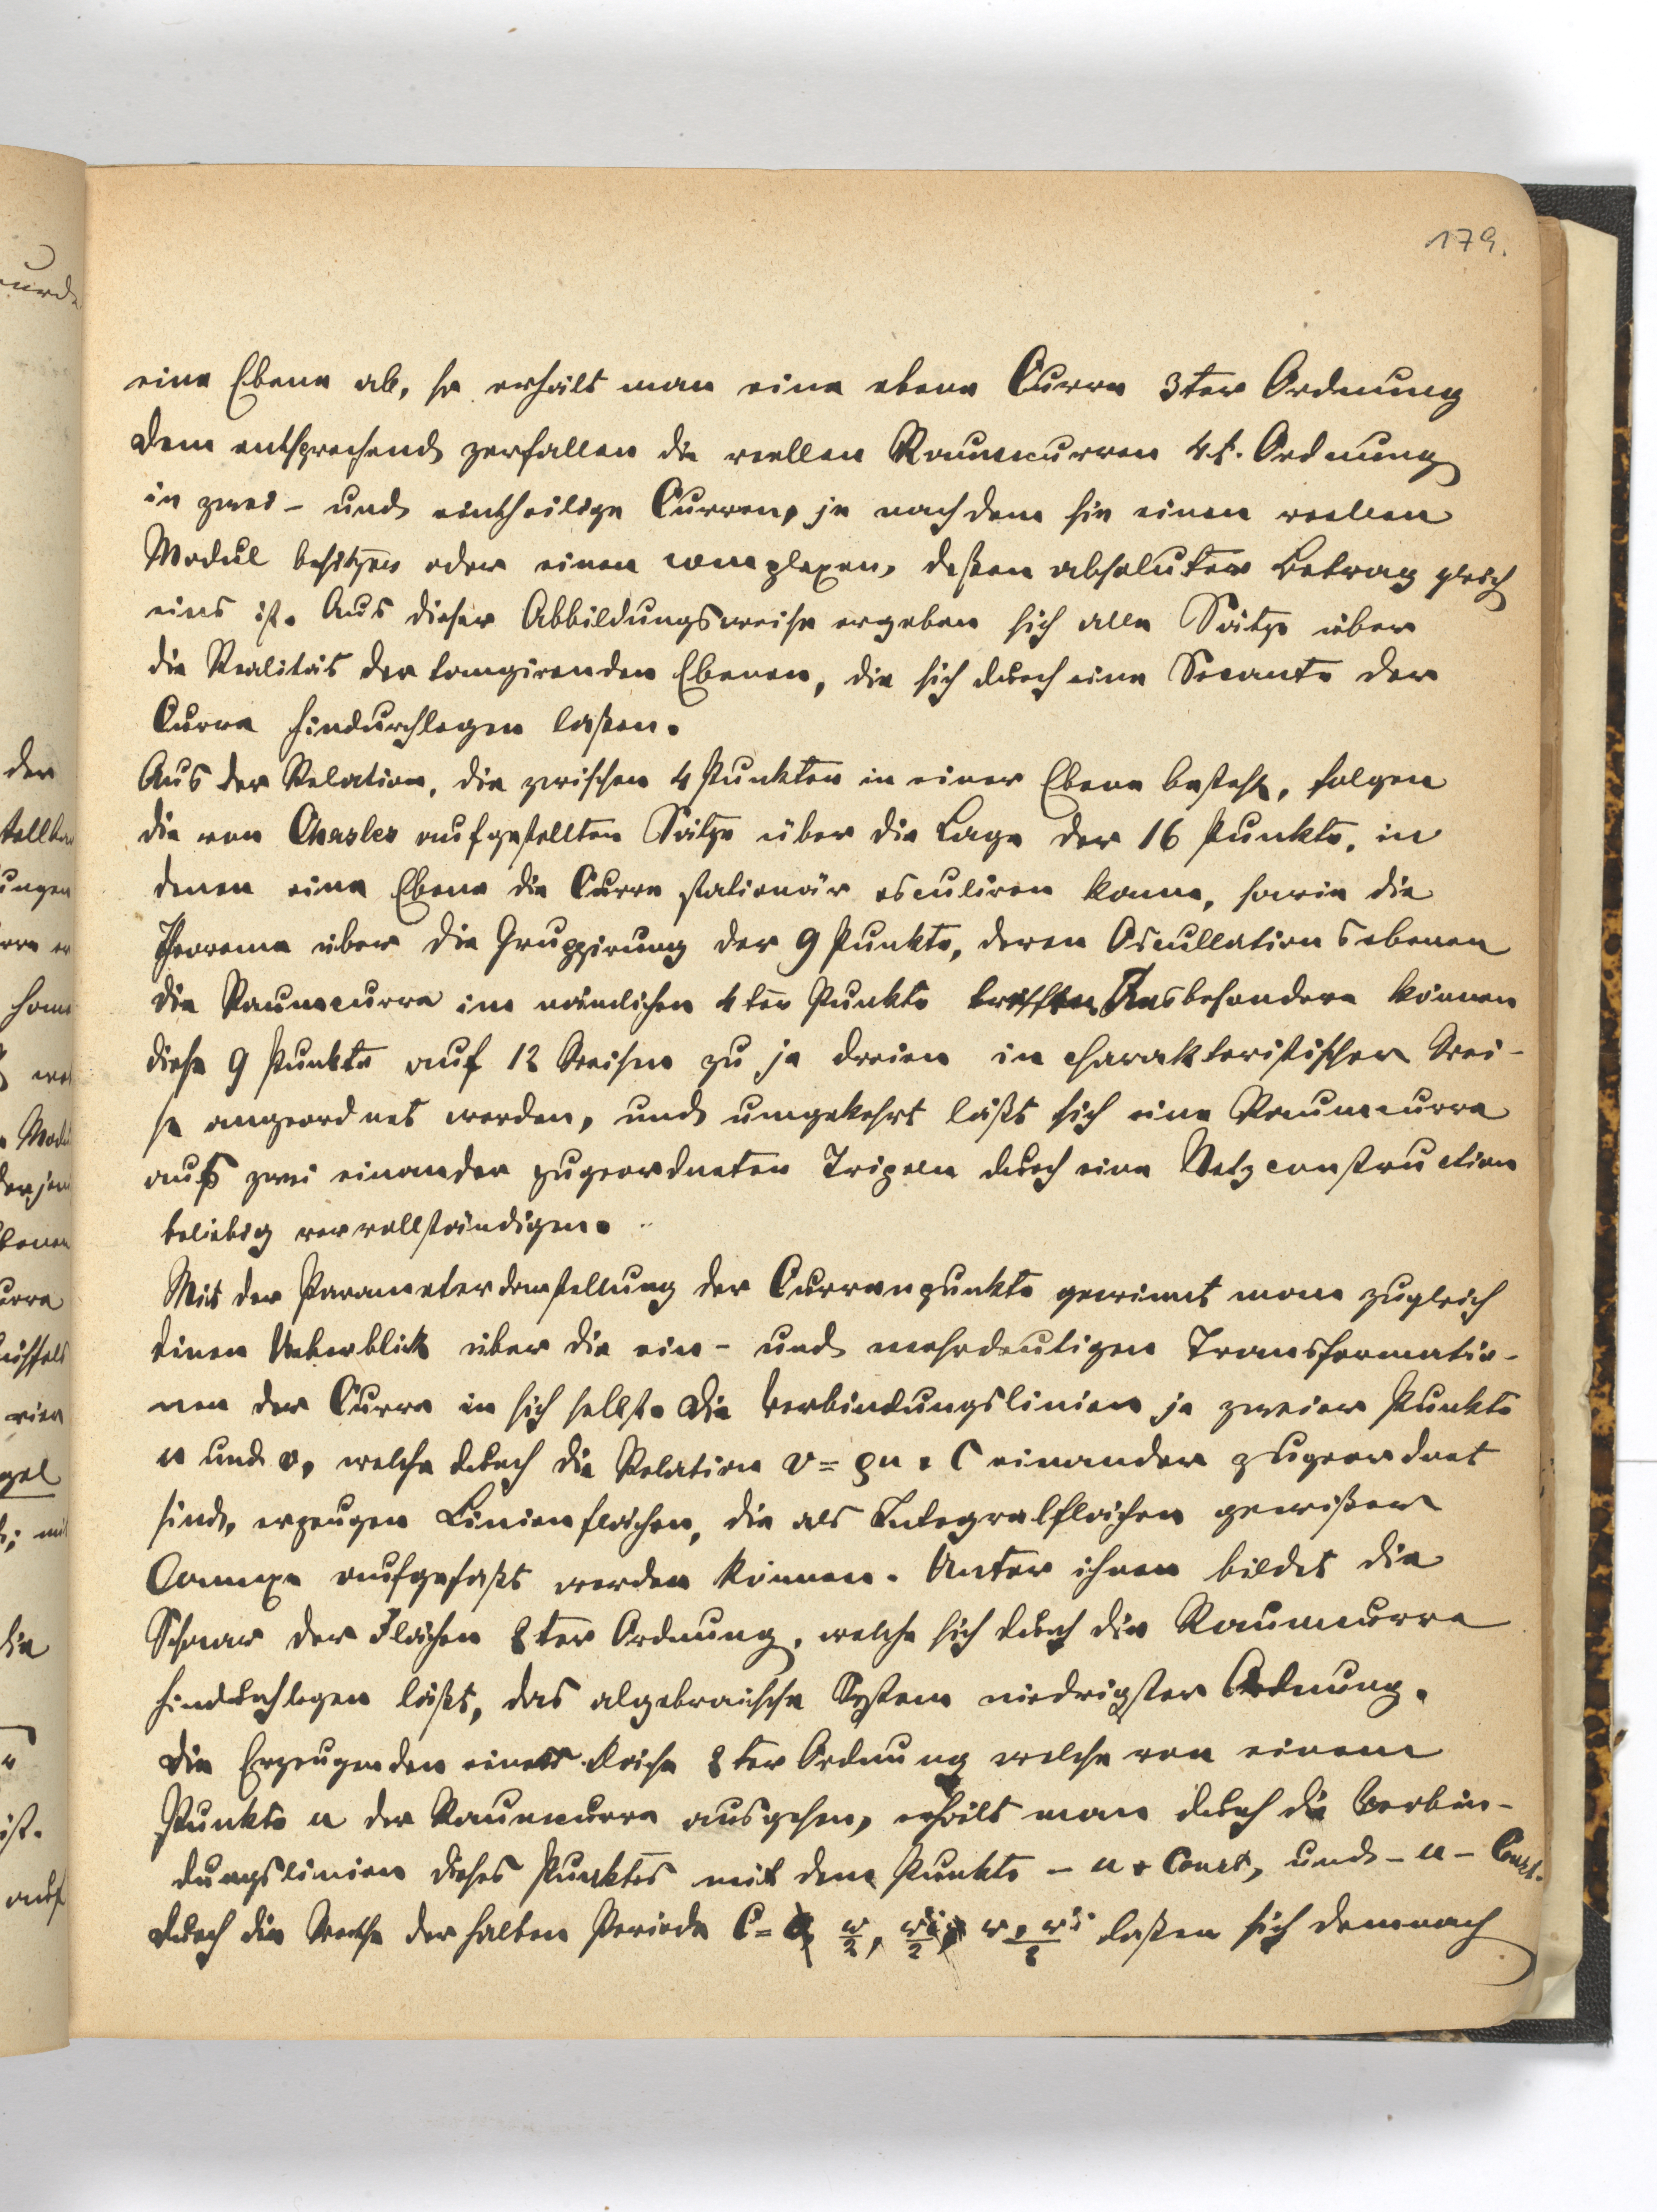 179.
eine Ebene ab, so erhält man eine ebene Curve 3ter Ordnung
dem entsprechend zerfallen die reellen Raumcurven 4t. Ordnung
in zwei- und eintheilige Curven, je nachdem sie einen reellen
Modul besitzen oder einen complexen, deßen absoluter Betrag gleich
eins ist. Aus dieser Abbildungsweise ergeben sich alle Sätze über
die Realität der tangirenden Ebenen, die sich durch eine Secante der
Curve hindurchlegen laßen.
Aus der Relation, die zwischen 4 Punkten in einer Ebene besteht, folgen
die von Chasles aufgestellten Sätze über die Lage der 16 Punkte, in
denen eine Ebene die Curve stationär osculiren kann, sowie die
Theoreme über die Gruppirung der 9 Punkte, deren Oscullationsebenen
die Raumcurve im nämlichen 4ten Punkte treffen Insbesondere können
diese 9 Punkte auf 12 Weisen zu je dreien in charakteristischer Wei-
se angeordnet werden, und umgekehrt läßt sich eine Raumcurve
aus zwei einander zugeordneten Tripeln durch eine Netzconstruction
beliebig vervollständigen.
Mit der Parameterdarstellung der Curvenpunkte gewinnt man zugleich
einen Ueberblick über die ein- und mehrdeutigen Transformatio-
nen der Curve in sich selbst. Die Verbindungslinien je zweier Punkte
u und v, welche durch die Relation v = ρu + C einander zugeordnet
sind, erzeugen Linienflächen, die als Integralflächen gewißer
Connexe aufgefaßt werden können. Unter ihnen bildet die
Schaar der Flächen 2ter Ordnung, welche sich durch die Raumcurve
hindurchlegen läßt, das algebraische System niedrigster Ordnung.
Die Erzeugenden einer Fläche 2ter Ordnung welche von einem
Punkte u der Raumcurve ausgehen, erhält man durch die Verbin-
dungslinien dieses Punktes mit dem Punkte - u + Const, und - u - Const.
durch die Werthe der halben Periode C = 0, w/2, w'i/2, w + w'i/2 laßen sich demnach